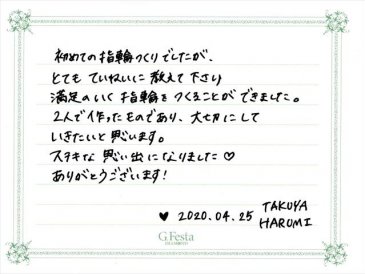 初めての指輪つくりでしたが、
とても ていねいに 教えて 下さり
満足のいく 指輪を つくることが できました。
2人で 作ったものであり、大切にして
いきたいと 思います。
ステキな 思い出に なりました♡
ありがとうございます!
♥ 2020.04.25 TAKUYA
HARUMI
G.Festa